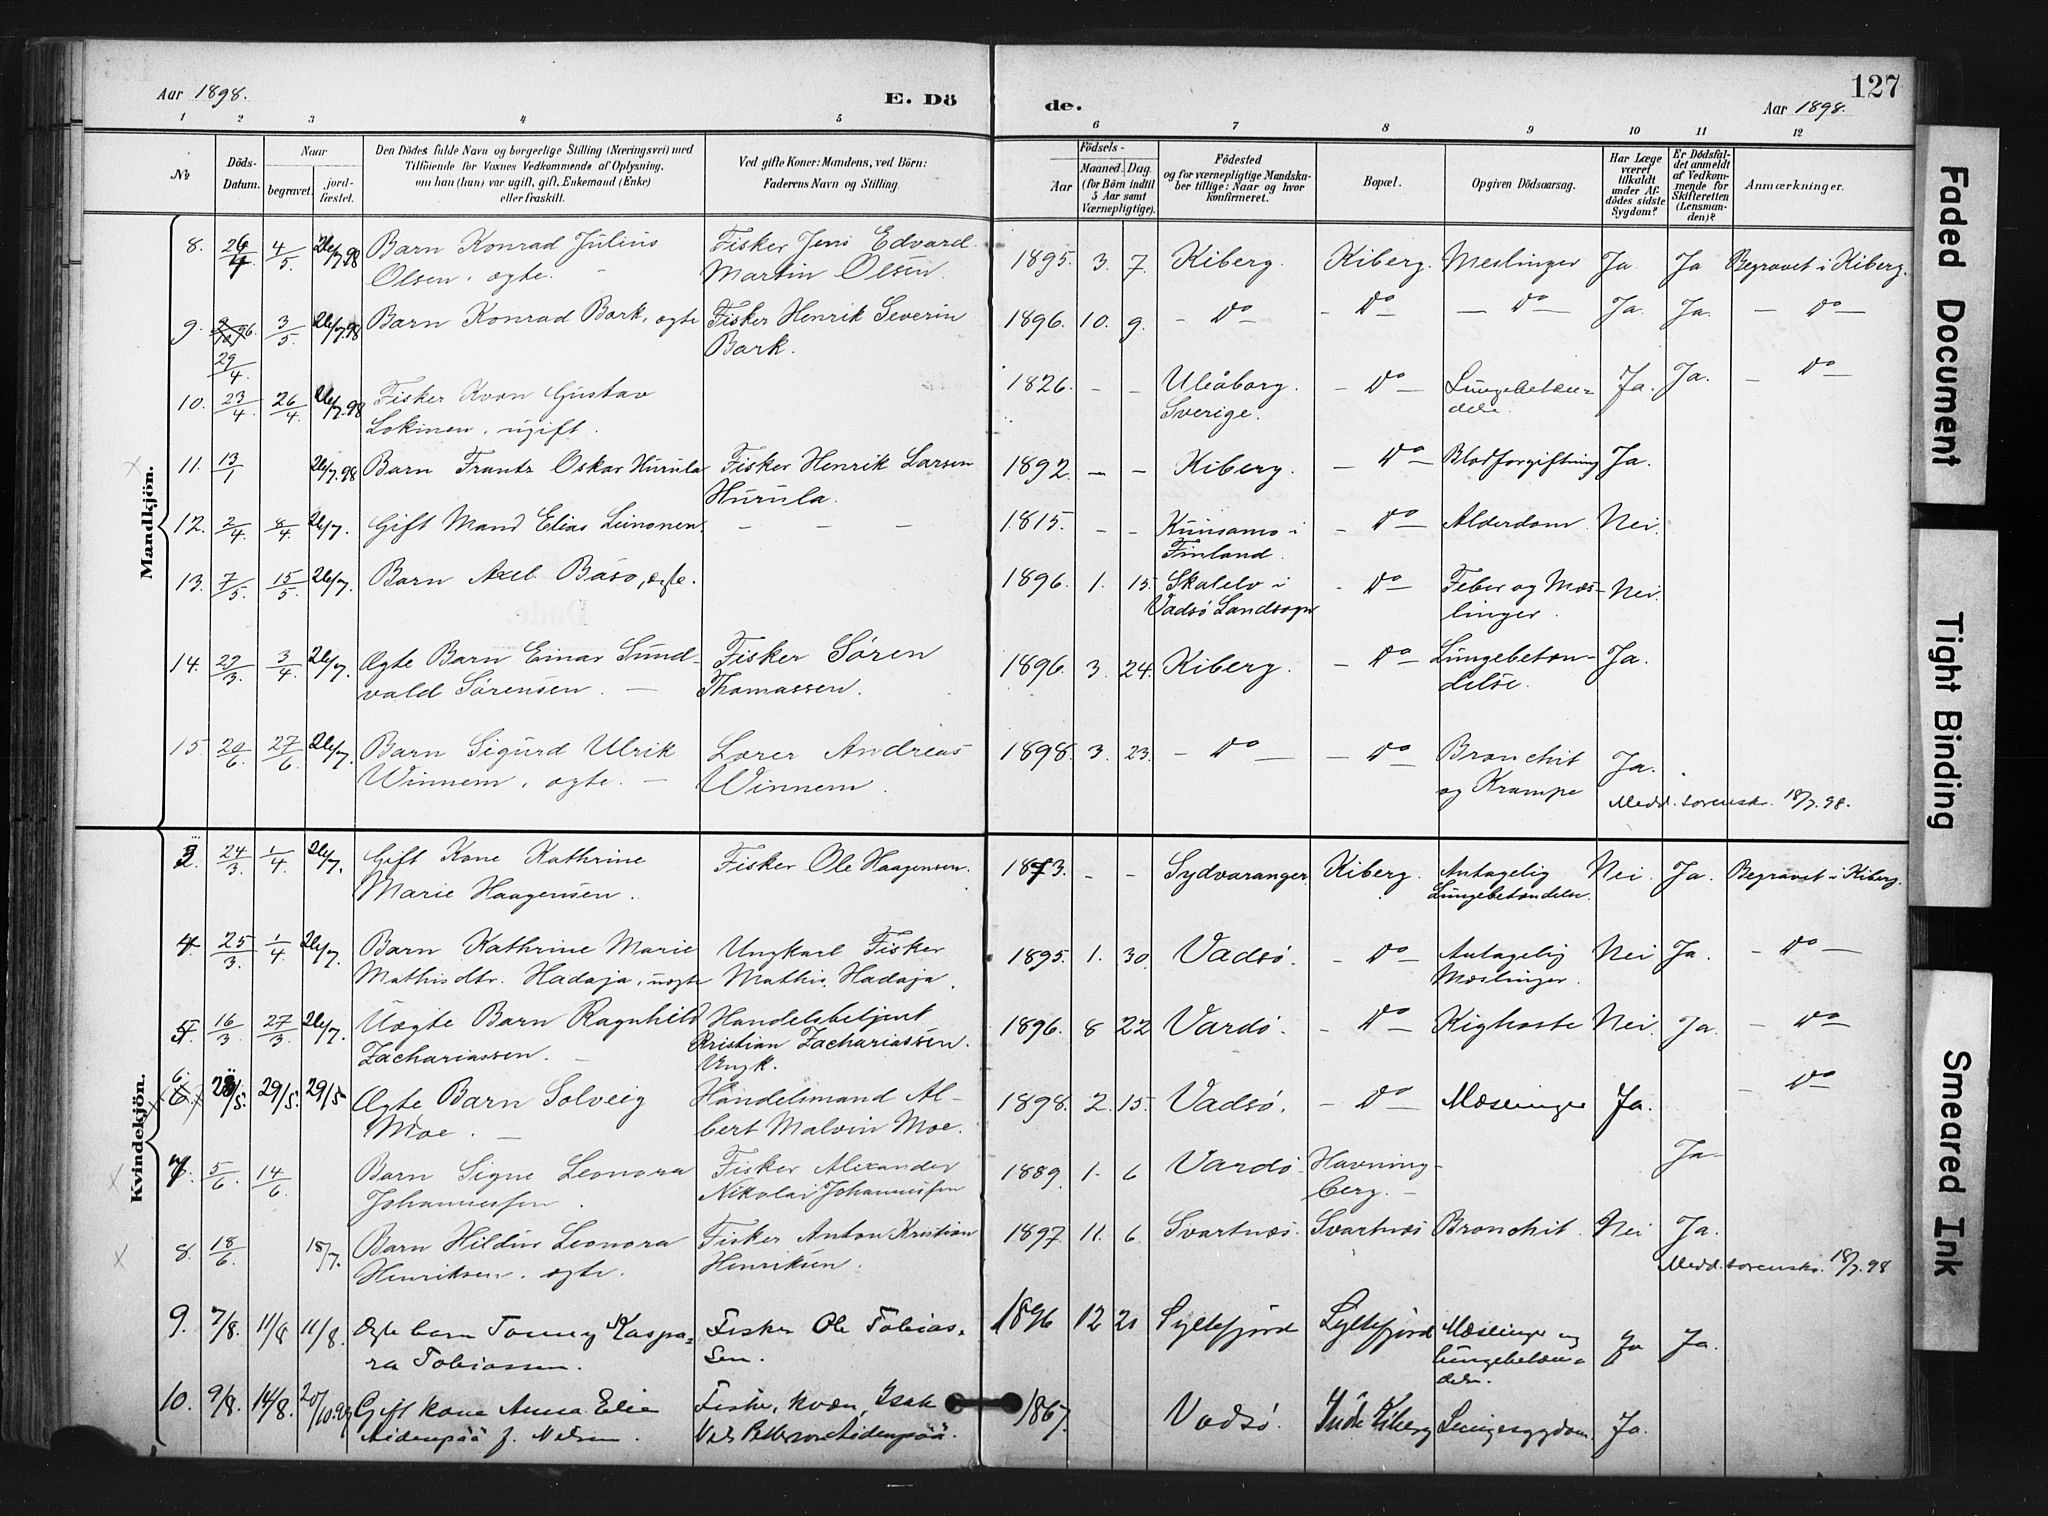 Aar 1898. E. Dö de. Aar 1898. 127
1 2 3 4 5 6 7 8 9 10 11 12
№ Döds-Datum. Naar begravet. jordfæstet. Den Dödes fulde Navn og borgerlige Stilling (Næringsvei) med Tilföiende for Voxnes Vedkommende af Oplysning, om han (hun) var ugift, gift, Enkemand (Enke) eller fraskilt. Ved gifte Koner: Mandens, ved Börn: Faderens Navn og Stilling. Födsels- Aar Maaned. Dag. (for Börn indtil 5 Aar samt Værnepligtige). Födested og for værnepligtige Mandskaber tillige: Naar og hvor konfirmeret. Bopæl. Opgiven Dödsaarsag. Har Læge været tilkaldt under Afdödes sidste Sygdom? Er Dödsfaldet anmeldt af Vedkommende for Skifteretten (Lensmanden)? Anmærkninger.
Mandkjön.
8. 26/4 4/5 26/7.98 Barn Konrad Julius Fisker Jens Edvard 1895. 3. 7. Kiberg. Kiberg. Meslinger Ja. Ja Begravet i Kiberg.
Olsen, ægte. Martin Olsen.
9. 29/4 3/5 26/7.98 Barn Konrad Bark, ægte Fisker Henrik Severin 1896. 10. 9. - Do - - Do - Do - Ja. Ja. - Do -
Bark.
10. 23/4 26/4 26/7.98 Fisker Kvæn Gustav 1826. - - Uleåborg. - Do - Lungebetæn- Ja. Ja. - Do -
Lokinen, ugift. Sverige. delse
11. 13/1 26/7.98 Barn Frantz Oskar Hurula Fisker Henrik Larsen 1892. - - Kiberg. - Do - Blodforgiftning Ja.
Hurula.
12. 2/4 8/4 26/7. Gift Mand Elias Leinonen. - - - 1815. - - Kuusamo i - Do - Alderdom. Nei.
Finland.
13. 7/5 15/5 26/7. Barn Axel Båso, ægte. 1896. 1. 15. Skalelv i - Do - Feber og Mæs- Nei.
Vadsö Landsogn linger.
14. 29/3 3/4 26/7. Ægte Barn Einar Sund- Fisker Sören 1896. 3. 24. Kiberg. - Do - Lungebetæn- Ja.
vald Sörensen. - Thomassen. delse.
15. 20/6 27/6 26/7. Barn Sigurd Ulrik Lærer Andreas 1898. 3. 23. - Do - - Do - Bronchit Ja.
Winnem, ægte. - Winnem. og Krampe Medd. sorenskr. 18/7.98.
Kvindekjön.
3. 24/3 1/4 26/7. Gift Kone Kathrine Fisker Ole Haagensen. 1873. - - Sydvaranger. Kiberg. Antagelig Nei. Ja. Begravet i Kiberg.
Marie Haagensen. Lungebetændelse.
4. 25/3 1/4 26/7. Barn Kathrine Marie Ungkarl Fisker 1895. 1. 30. Vadsö. - Do - Antagelig Nei Ja. - Do -
Mathisdtr. Hadaja, uægte Mathis Hadaja. Mæslinger.
5. 16/3 27/3 26/7. Uægte Barn Ragnhild Handelsbetjent 1896. 8 22 Vardö. - Do - Kighoste Nei. Ja. - Do -
Zachariassen. - Kristian Zachariassen.
Ungk.
6. 28/5. 29/5. 29/5 Ægte Barn Solveig Handelsmand Al- 1898. 2. 15. Vadsö. - Do - Mæslinger Ja. - Do -
Moe. - bert Malvin Moe.
7. 5/6 14/6 Barn Signe Leonora Fisker Alexander 1889. 1. 6 Vardö. Havning- Ja.
Johannessen. Nikolai Johannessen berg. -
8. 18/6 18/7. Barn Hildur Leonora Fisker Anton Kristian 1897. 11. 6. Svartnæs. Svartnæs Bronchit. Nei Ja.
Henriksen, ægte. Henriksen. Medd. sorenskr. 18/7.98
9. 7/8. 11/8 11/8. Ægte barn Tommy Kaspa- Fisker Ole Tobias- 1896 12 21 Syltefjord Syltefjord Mæslinger og Ja Ja.
ra Tobiassen. sen. lungebetæn-
delse.
10. 9/8. 14/8. 20/10.98 Gift kone Anna Elie Fisker, kvæn, Isak 1867. Vadsö. Indre Kiberg Lungesygdom. Ja.
Aidenpää f. Nilsen. Aidenpää.
Faded Document
Tight Binding
Smeared Ink